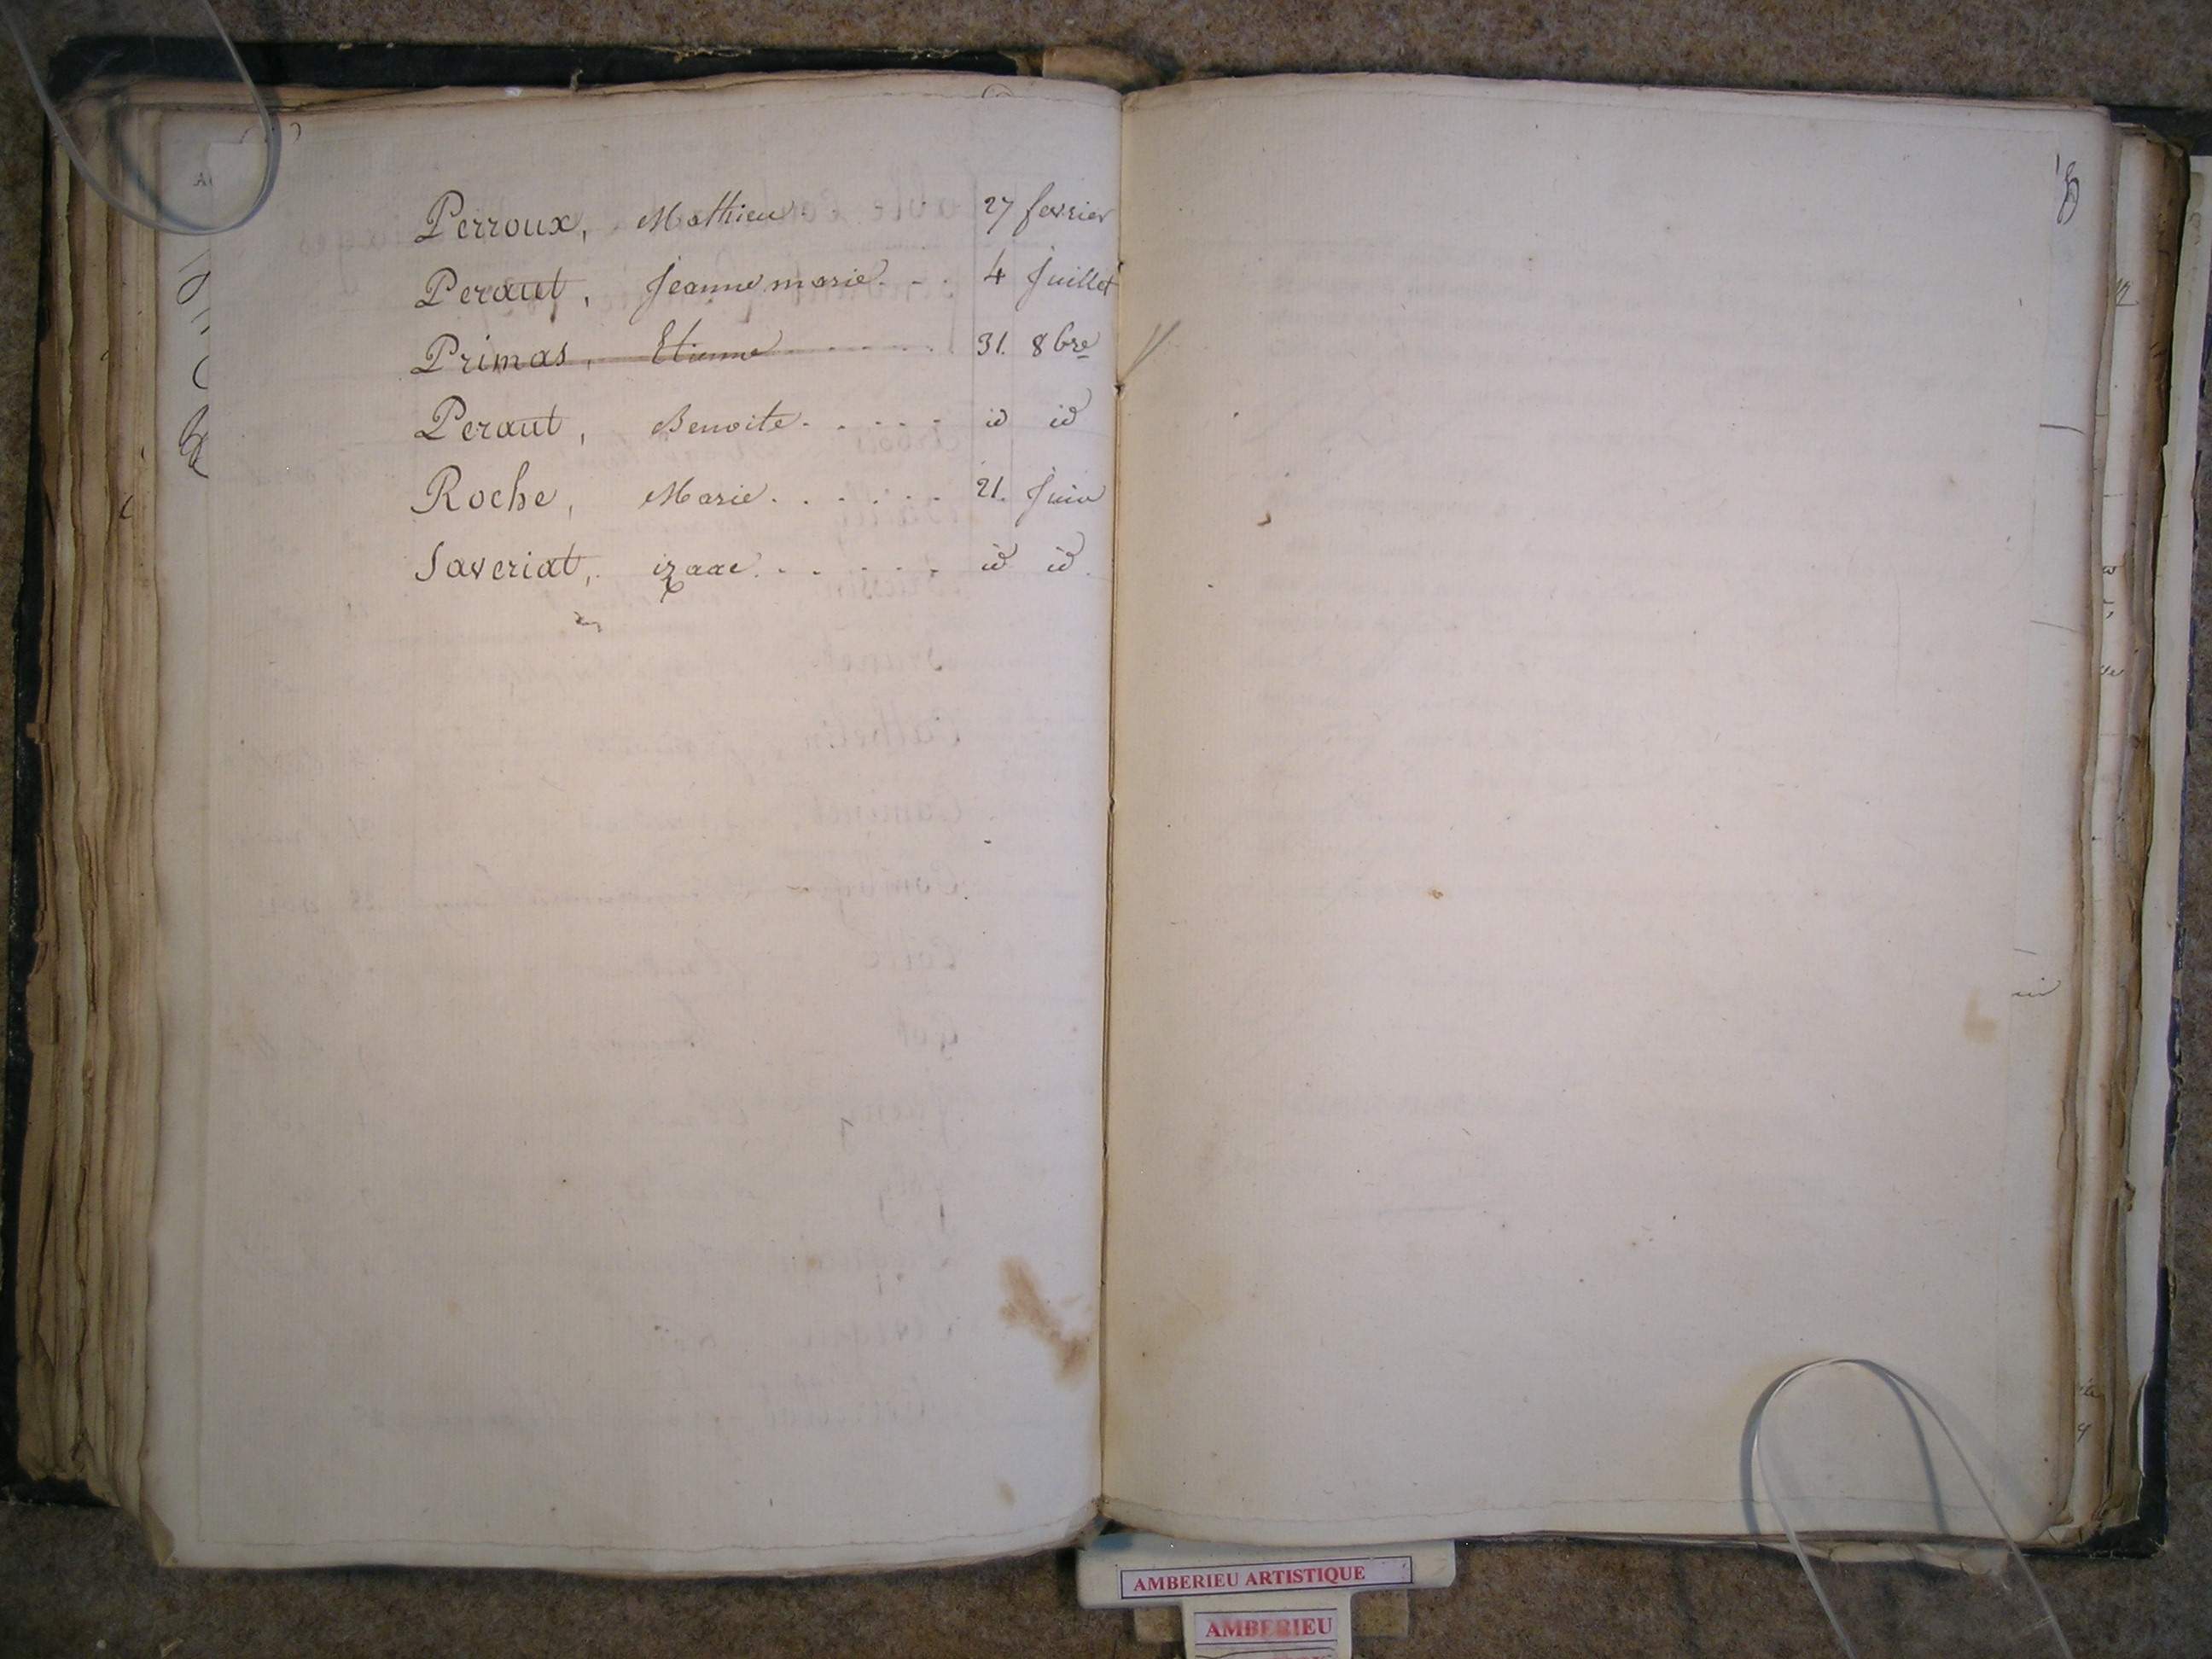 Perroux, Mathieu. . . . 27 fevrier
Peraut, Jeanne marie. . . . 4 Juillet
Primas, Etienne . . . . . 31. 8bre
Peraut, Benoite. . . . . id id
Roche, Marie. . . . . . 21. Juin
Saveriat, izaac. . . . . . id id.
AMBERIEU ARTISTIQUE
AMBERIEU